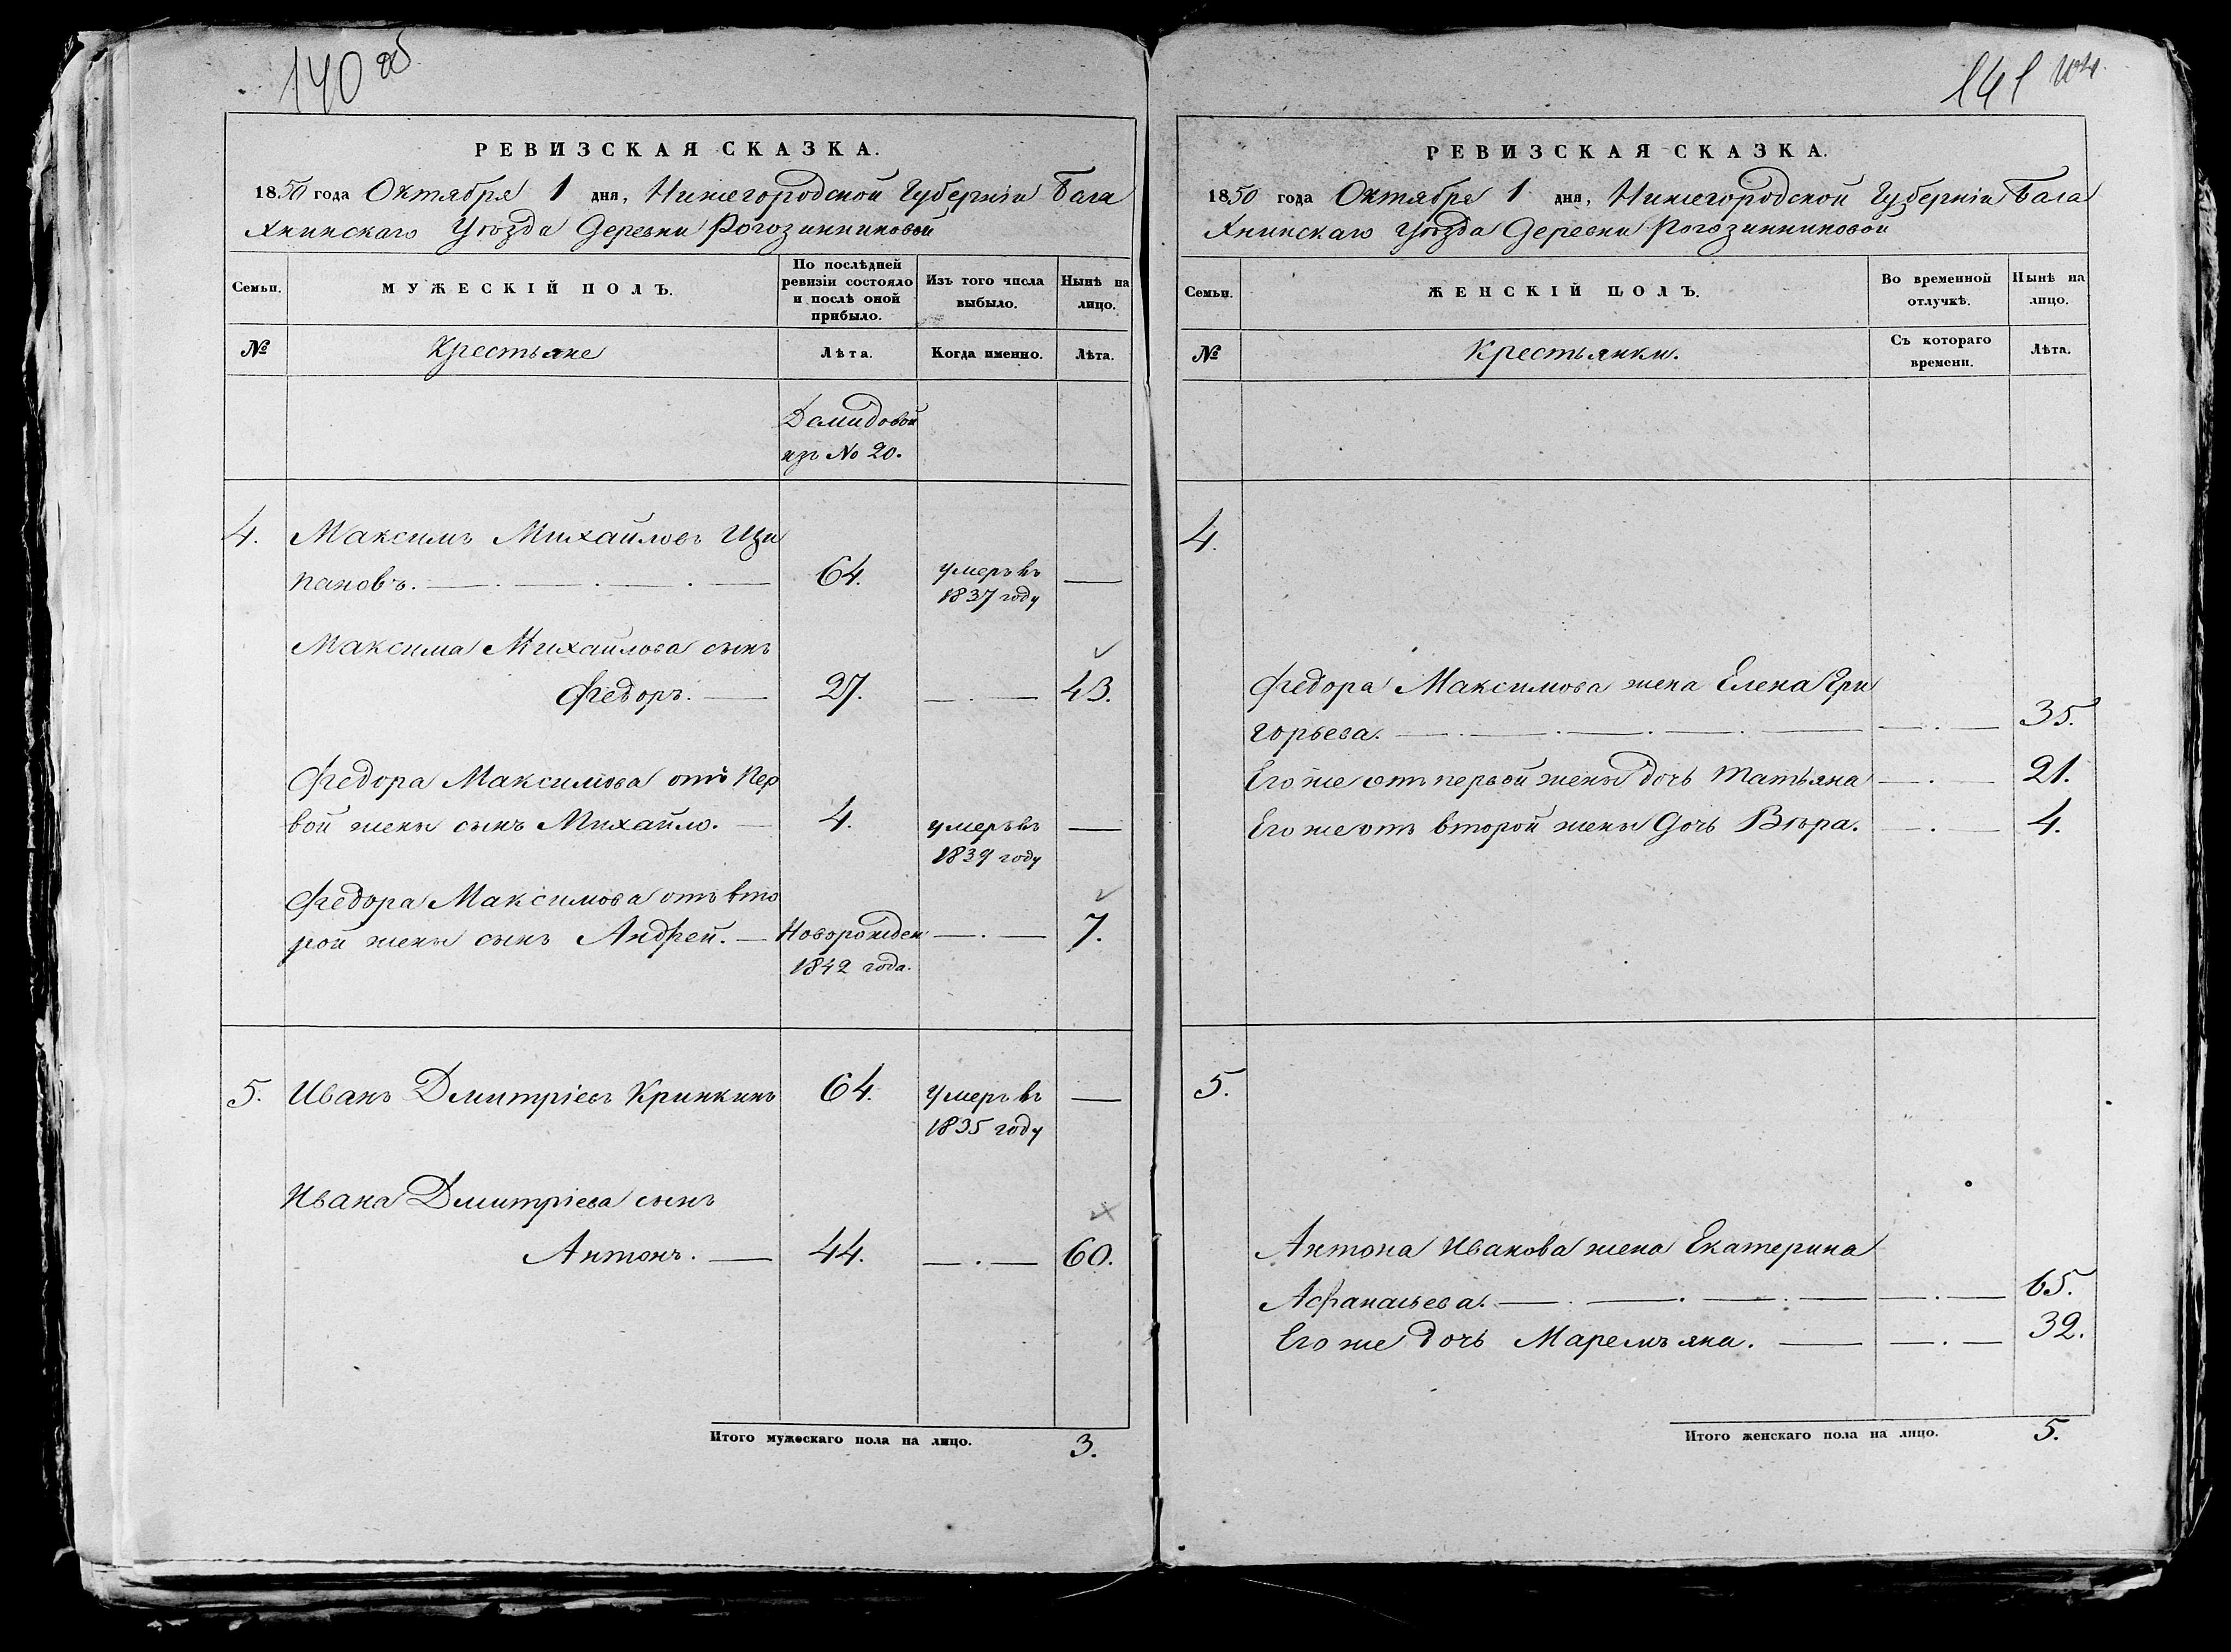 140 об
РЕВИЗСКАЯ СКАЗКА.
1850 года Октября 1 дня, Нижегородской Губерніи Бала
хнинскаго Уѣзда Деревни Рогозинниковой
Семьи.
МУЖЕСКІЙ ПОЛЪ.
По послѣдней
ревизіи состояло
и послѣ оной
прибыло.
Изъ того числа
выбыло.
Нынѣ на
лицо.
№
Крестьяне
Лѣта.
Когда именно.
Лѣта.
Демидовой
изъ № 20.
4. Максимъ Михайловъ Щи
пановъ. 64. умеръ въ
1837 году
Максима Михайлова сынъ
Федоръ. 27. 43.
Федора Максимова отъ пер
вой жены сынъ Михайло. 4. умеръ въ
1839 году
Федора Максимова отъ вто
рой жены сынъ Андрей. Новорожден 7.
1842 года.
5. Иванъ Дмитріевъ Кринкинъ 64. умеръ въ
1835 году
Ивана Дмитріева сынъ
Антонъ. 44. 60.
Итого мужескаго пола на лицо. 3.
141
РЕВИЗСКАЯ СКАЗКА.
1850 года Октября 1 дня, Нижегородской Губерніи Бала
хнинскаго Уѣзда Деревни Рогозинниковой
Семьи.
ЖЕНСКІЙ ПОЛЪ.
Во временной
отлучкѣ.
Нынѣ на
лицо.
№
Крестьянки.
Съ котораго
времени.
Лѣта.
4.
Федора Максимова жена Елена Гри
горьева. 35.
Его же отъ первой жены дочь Татьяна 21.
Его же отъ второй жены Дочь Вѣра. 4.
5.
Антона Иванова жена Екатерина
Афанасьева. 65.
Его же дочь Маремъяна. 32.
Итого женскаго пола на лицо. 5.